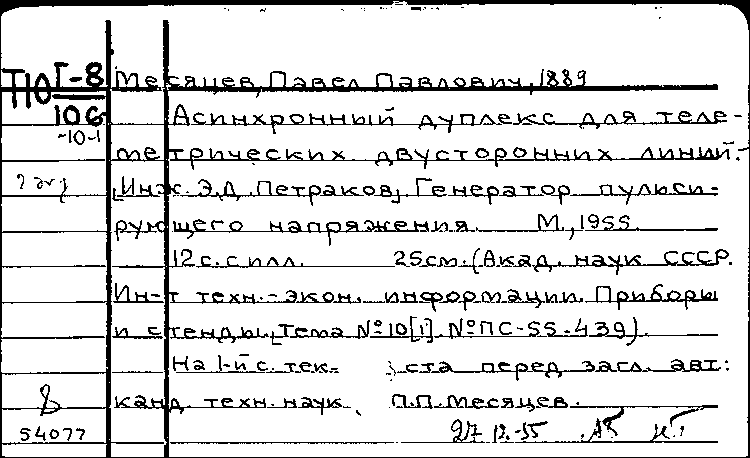 Т10 Г-8
106
-10-1
Месяцев, Павел Павлович, 1889
Асинхронный дуплекс для теле-
метрических двусторонних линий.-
[Инж. Э.Д. Петраков]. Генератор пульси-
рующего напряжения. М., 1955.
12 с. с илл. 25 см. (Акад. наук СССР.
Ин-т техн.-экон. информации. Приборы
и стенды. [Тема №10[1]. №ПС-55-439).
На 1-й с. тек- ста перед загл. авт:
канд. техн. наук П.П. Месяцев.
8
54077
27 12.-55